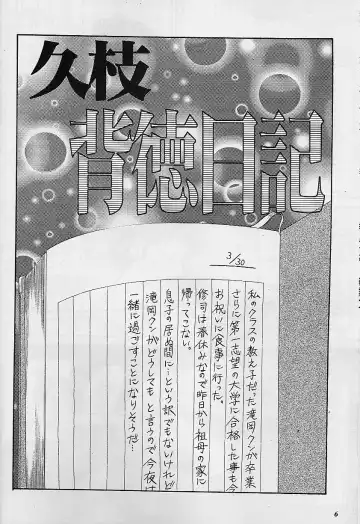 久枝
背徳日記
3/30
私のクラスの教え子だった滝岡クンが卒業
さらに第一志望の大学に合格した事も今
お祝いに食事に行った。
修司は春休みなので昨日から祖母の家に
帰ってこない。
息子の居ぬ間に…という訳でもないけれど
滝岡クンがどうしてもと言うので今夜は
一緒に過ごすことになりそうだ…
6